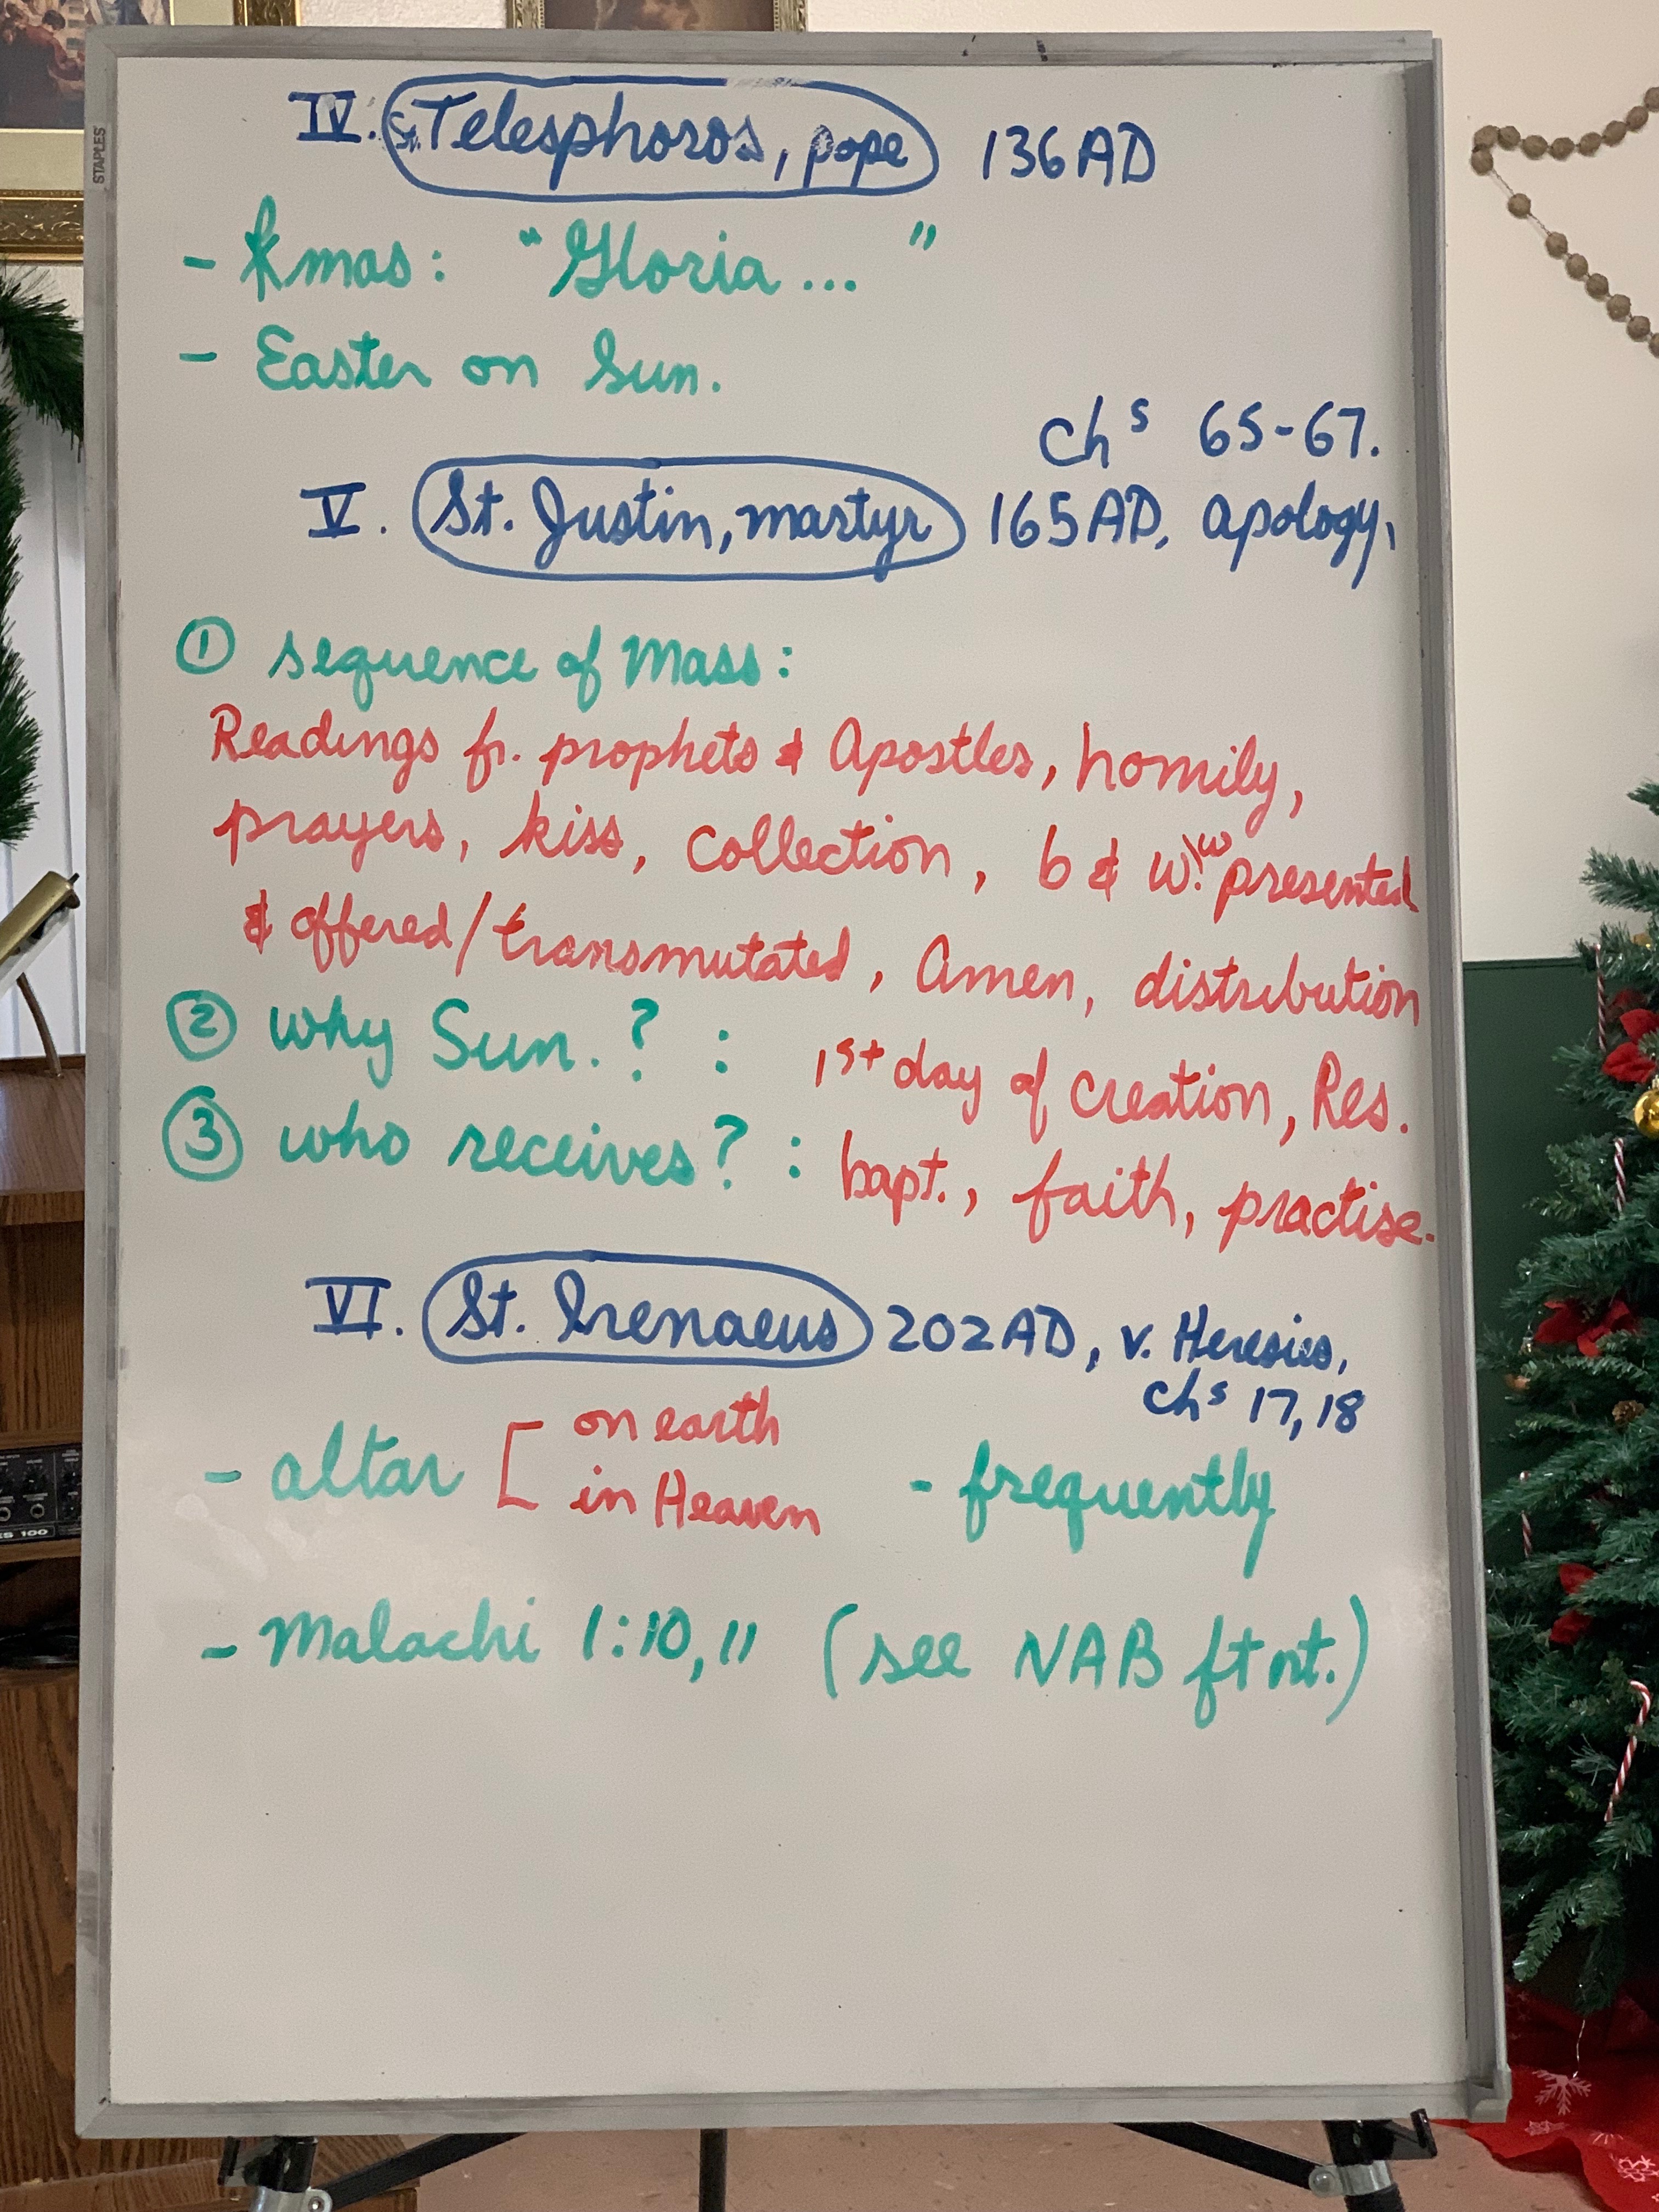 IV. St. Telesphoros, pope 136 AD
- Xmas: "Gloria... "
- Easter on Sun.
Chs 65-67.
V. St. Justin, martyr 165 AD, Apology,
① sequence of Mass:
Readings fr. prophets & Apostles, homily,
prayers, kiss, collection, b & w\w! presented
& offered/transmutated, Amen, distribution
② why Sun.? : 1st day of creation, Res.
③ who receives? : bapt., faith, practise.
VI. St. Irenaeus 202 AD, v. Heresies,
Chs 17, 18
- altar [ on earth
in Heaven - frequently
- Malachi 1:10, 11 (see NAB ftnt.)
STAPLES
ES 100